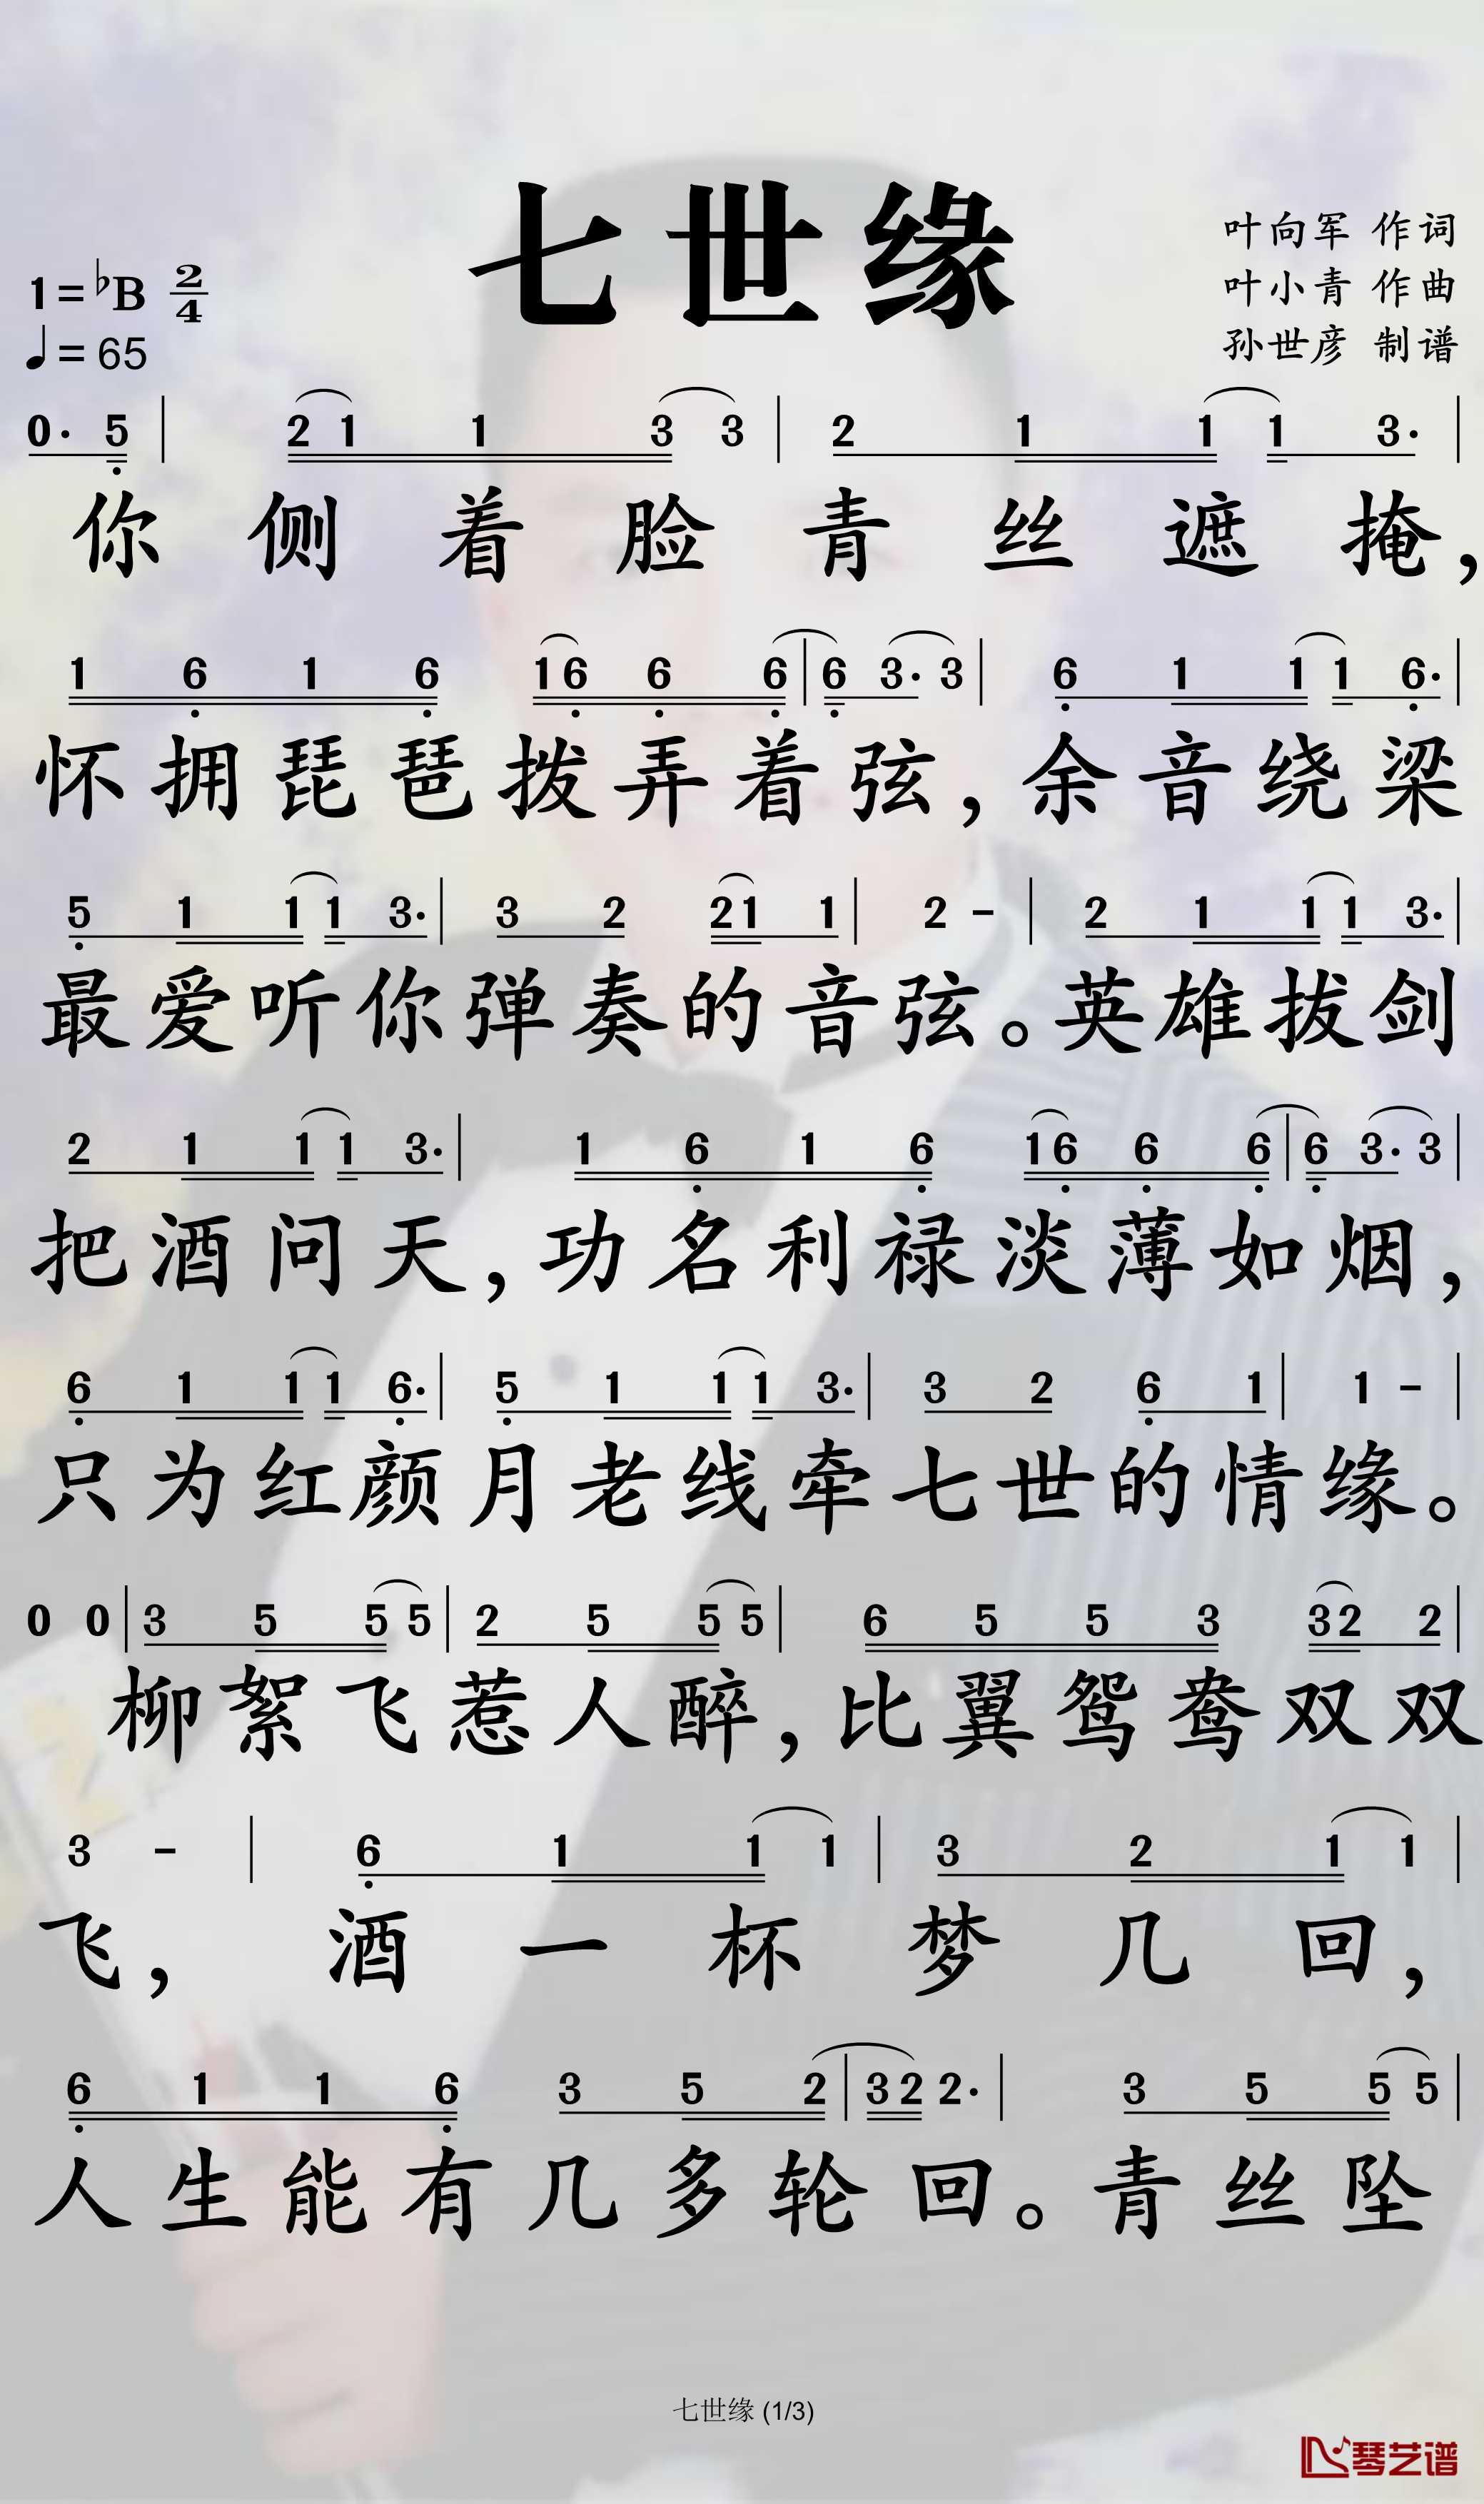 七世缘
叶向军 作词
叶小青 作曲
孙世彦 制谱
1=♭B 2/4
♩=65
0. 5 | 2 1 1 3 3 | 2 1 1 1 3. |
你侧着脸青丝遮掩，
1 6 1 6 16 6 6 | 6 3. 3 | 6 1 1 1 6. |
怀拥琵琶拨弄着弦，余音绕梁
5 1 1 1 3. | 3 2 21 1 | 2 - | 2 1 1 1 3. |
最爱听你弹奏的音弦。英雄拔剑
2 1 1 1 3. | 1 6 1 6 16 6 6 | 6 3. 3 |
把酒问天，功名利禄淡薄如烟，
6 1 1 1 6. | 5 1 1 1 3. | 3 2 6 1 | 1 - |
只为红颜月老线牵七世的情缘。
0 0 | 3 5 5 5 | 2 5 5 5 | 6 5 5 3 32 2 |
柳絮飞惹人醉，比翼鸳鸯双双
3 - | 6 1 1 1 | 3 2 1 1 |
飞，酒一杯梦几回，
6 1 1 6 3 5 2 | 3 2 2. | 3 5 5 5 |
人生能有几多轮回。青丝坠
七世缘 (1/3)
琴艺谱